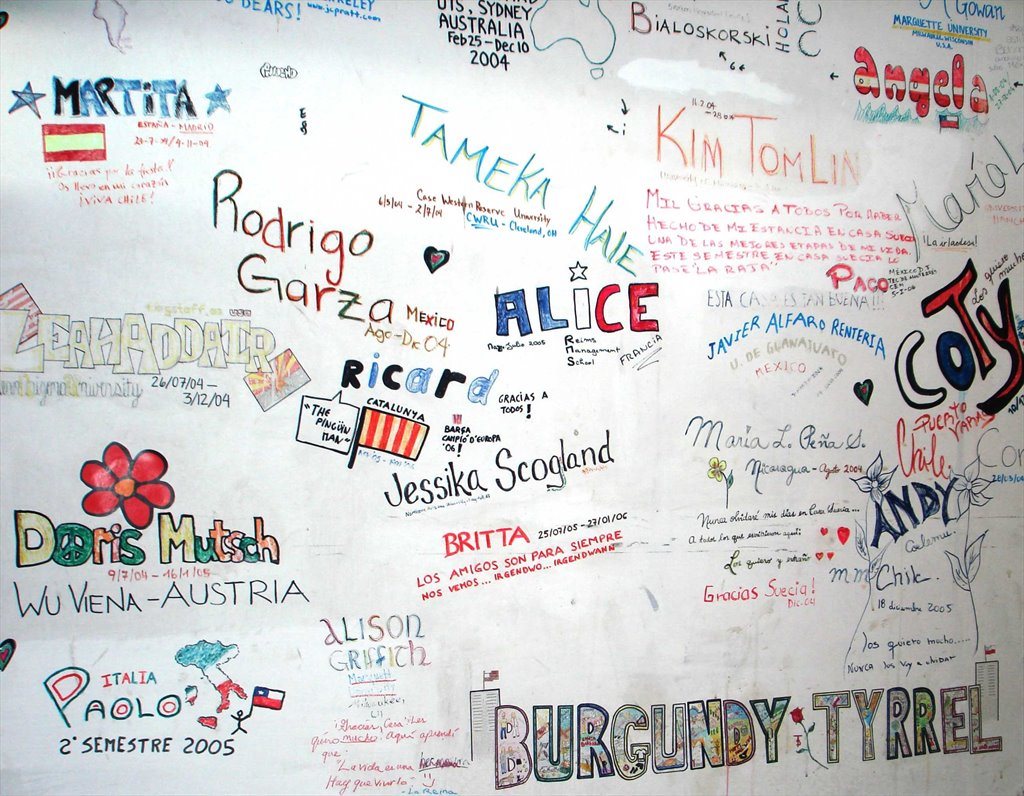 DEARS!
UTS, SYDNEY
AUSTRALIA
Feb25-Dec10
2004
BIALOSKORSKI
Gowan
MARQUETTE UNIVERSITY
MILWAUKEE, WISCONSIN
U.S.A.
angela
MARTITA
ESPAÑA - MADRID
¡¡Gracias por la fiesta!
Os llevo en mi corazón
¡VIVA CHILE!
TAMEKA HALE
Case Western Reserve University
CWRU - Cleveland, OH
KIM TOMLIN
MIL GRACIAS A TODOS POR HABER
HECHO DE MI ESTANCIA EN CASA SUECIA
UNA DE LAS MEJORES ETAPAS DE MI VIDA.
ESTE SEMESTRE EN CASA SUECIA LO
PASÉ "LA RAJA"
María L
¡La irlandesa!
Rodrigo
Garza MEXICO
Ago-Dic 04
PACO
ESTA CASA ES TAN BUENA!!!
JAVIER ALFARO RENTERIA
U. DE GUANAJUATO
MEXICO
ALICE
Julio 2005
Reims
Management
School
FRANCIA
Los quiero mucho
COTY
PUERTO VARAS
Chile
LEAH ADDAIR
26/07/04 -
3/12/04
Ricard
GRACIAS A
TODOS!
"THE
PINGÜIN
MAN"
CATALUNYA
BARÇA
CAMPIÓ D'EUROPA
'06!
Jessika Scogland
María L. Peña S.
Nicaragua - Agosto 2004
Nunca olvidaré mis días en Casa Suecia...
A todos los que
Los quiero y extraño
Gracias Suecia!
Dic. 04
ANDY
Coelemu
Chile.
18 diciembre 2005
los quiero mucho.....
NUNCA los voy a olvidar
Doris Mutsch
9/7/04 - 16/1/05
WU VIENA - AUSTRIA
BRITTA 25/07/05 - 27/01/06
LOS AMIGOS SON PARA SIEMPRE
NOS VEMOS... IRGENDWO... IRGENDWANN
ITALIA
PAOLO
2° SEMESTRE 2005
ALISON
GRIFFITH
¡Gracias, Casa! Les
quiero mucho. Aquí aprendí
que
"La vida es una
Hay que vivirlo"
- La Reina
BURGUNDY TYRREL